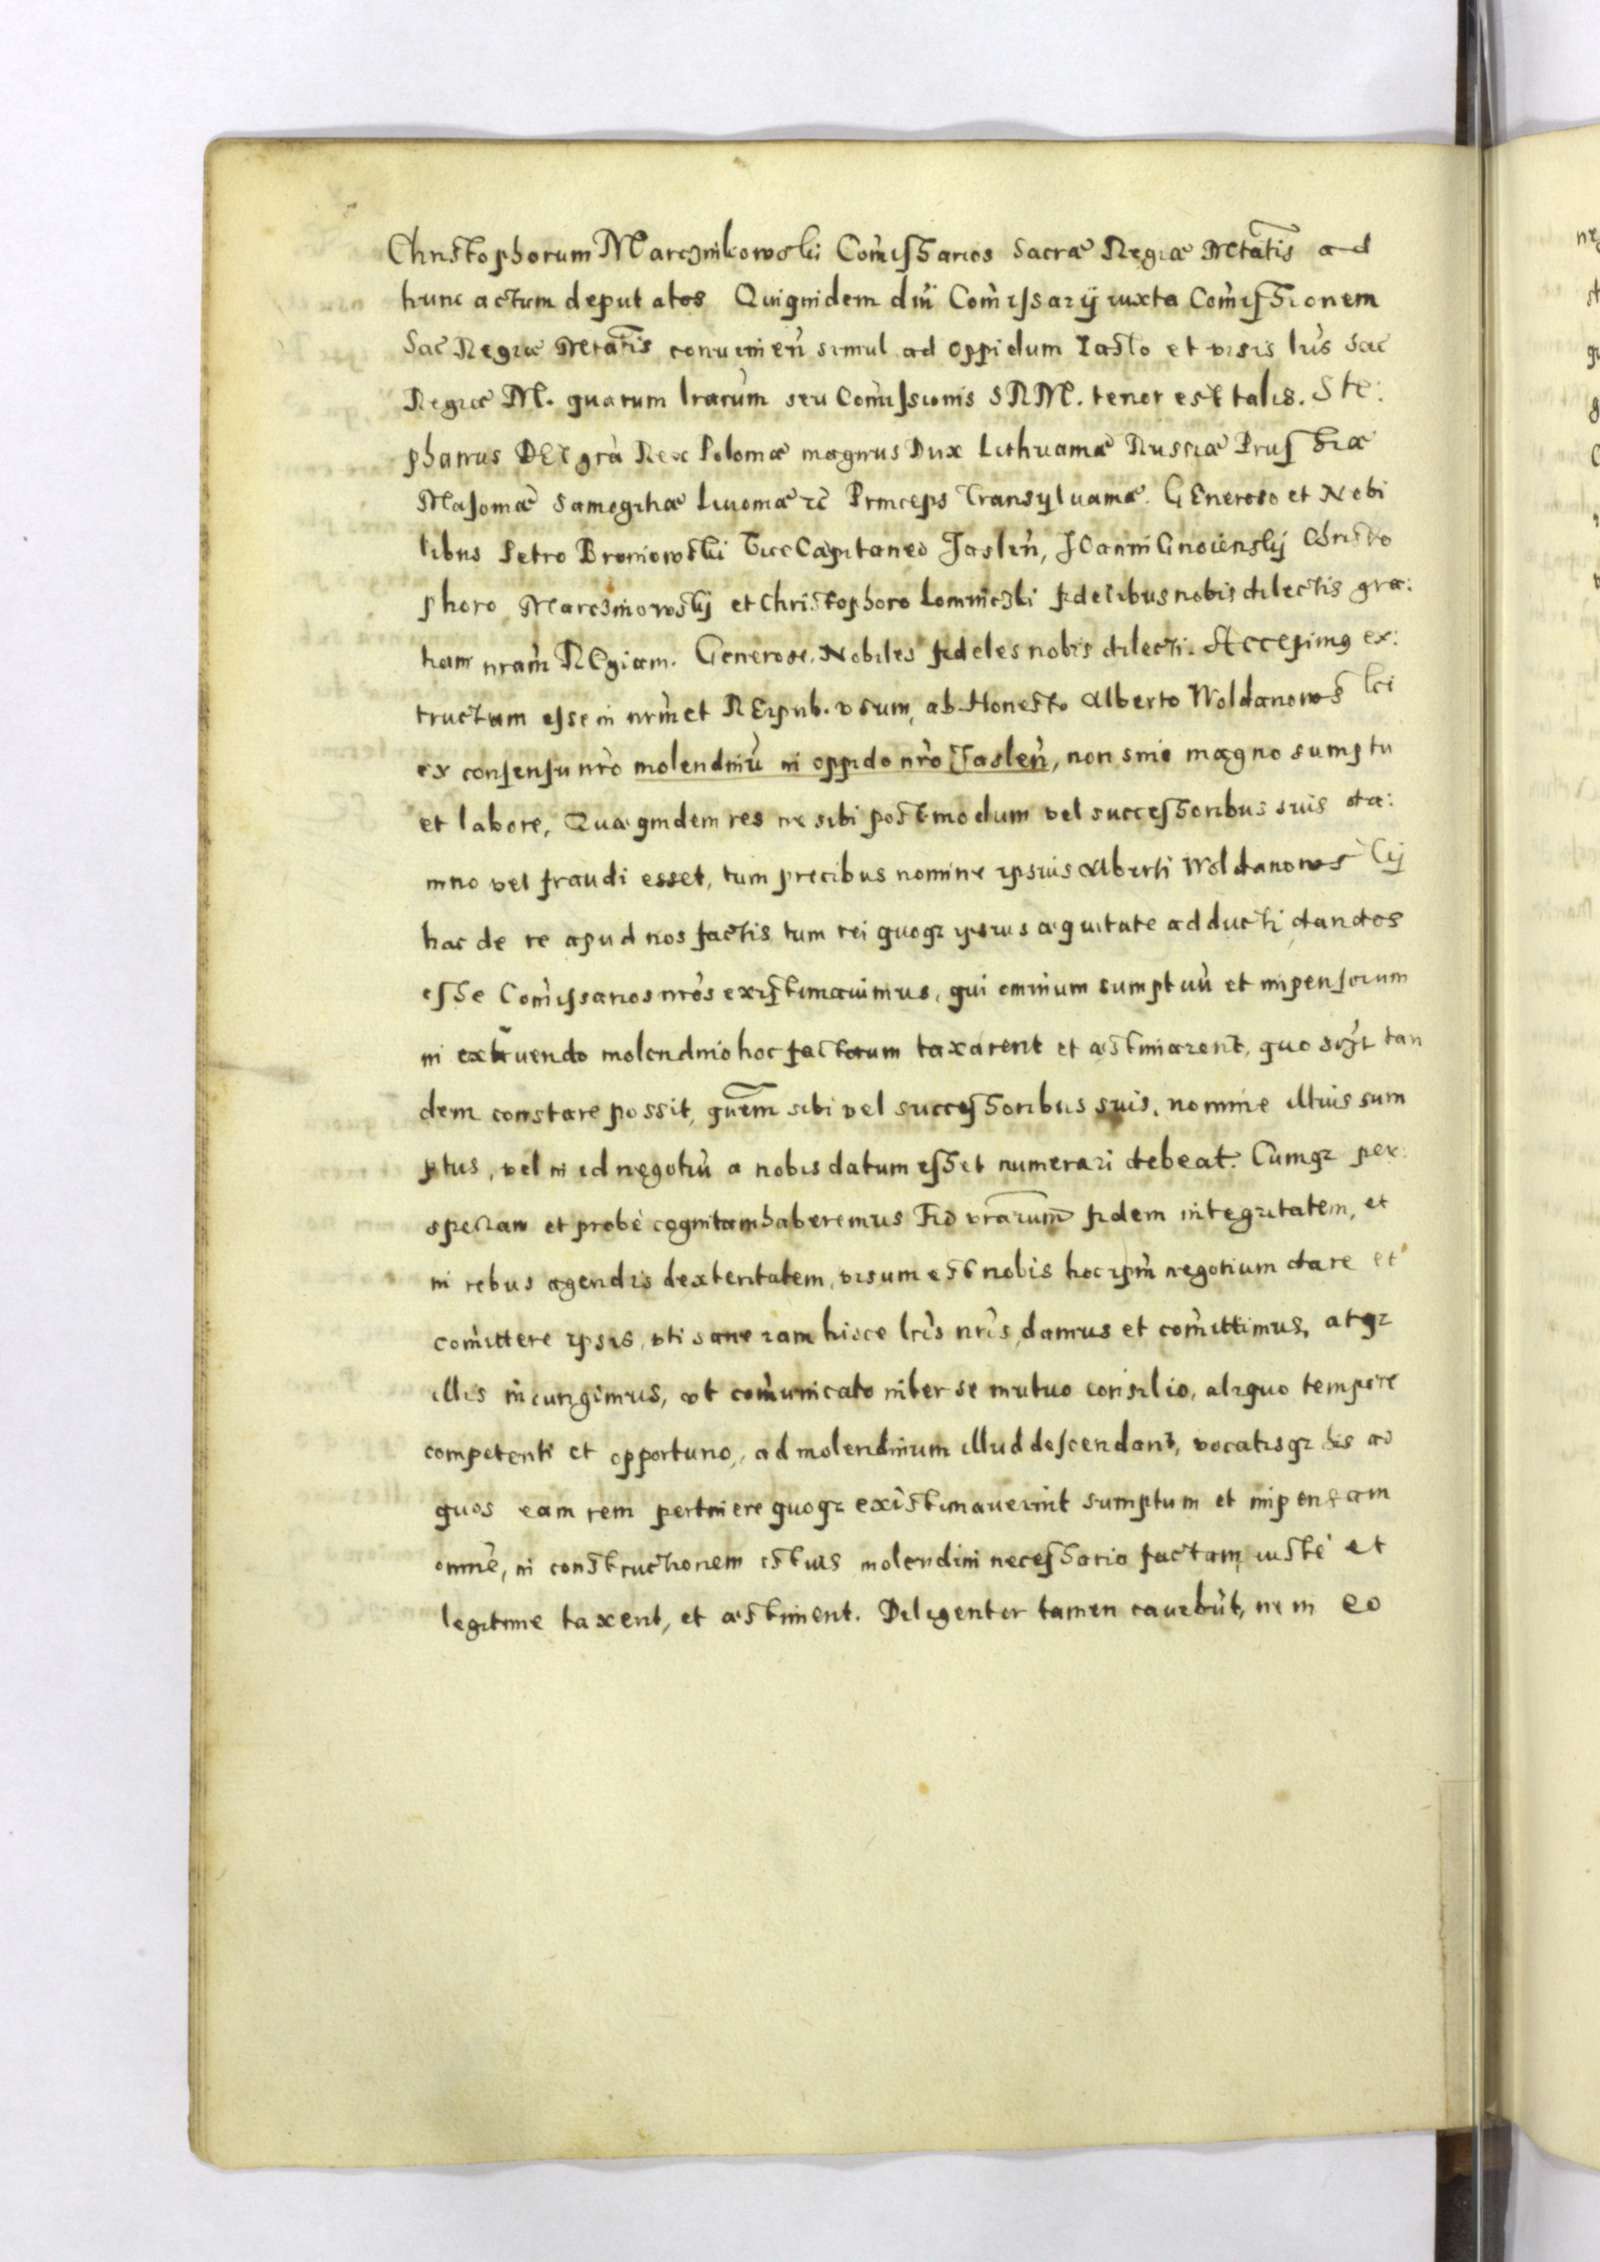 Christophorum Marczinkowski Com̃issarios Sacræ Regiæ Mtatis ad
hunc actum deputatos Quiquidem dñi Com̃issarij iuxta Com̃issionem
Sac̃ Regiæ Mtatis conuineñ simul ad oppidum Iaslo et visis lr̃is Sac̃
Regiæ M. quarum lrarũm seu Com̃issionis SRM. tenor est talis. Ste:
phanus DEI grà Rex Poloniæ magnus Dux Lithuaniæ Russiæ Prussiæ
Masoniæ Samogitiæ Liuoniæ zc̃ Princeps Transyluaniæ. GEneroso et Nobi
libus Petro Broniowski ViceCapitaneo Jasleñ, JOanni Gnoienskij Christo
phoro Marcziniowskij et Christophoro Lomniczki fidelibus nobis dilectis gra:
tiam nrãm REgiam. Generose, Nobiles fideles nobis dilecti. Accepimg ex:
tructum esse in nrm̃ et REipub. vsum, ab Honesto Alberto Woldanows kci
ex consensu nrõ molendinũ in oppido nrõ Jasleñ, non sine magno sumptu
et labore, Quæ quidem res ne sibi postmodum vel successoribus suis da:
mno vel fraudi esset, tum precibus nomine ipsius Alberti Woldanows kij
hac de re apud nos factis tum rei quoqz ipsius æquitate adducti dandos
esse Com̃issarios nrõs existimauimus, qui omnium sumptuũ et impensarum
in extruendo molendino hoc factorum taxarent et æstimarent, quo sciri tan
dem constare possit, quem sibi vel successoribus suis, nomine illius sum
ptus, vel in id negotiũ a nobis datum esset numerari debeat. Cumqz per:
spectam et probè cognitam haberemus Fid vrarum fidem integritatem, et
in rebus agendis dexteritatem, visum est nobis hoc ipm̃ negotium dare et
com̃ittere ipsis, vti sane iam hisce lr̃is nr̃is, damus et com̃ittimus, atqz
illis iñiungimus, vt com̃unicato inter se mutuo consilio, aliquo tempore
competenti et opportuno, ad molendinum illud descendant, vocatisqz his ad
quos eam rem pertinere quoqz existimauerint sumptum et impensam
omnẽ, in constructionem istius molendini necessario factam, iustè et
legitime taxent, et æstiment. Diligenter tamen cauebũt, ne in eo